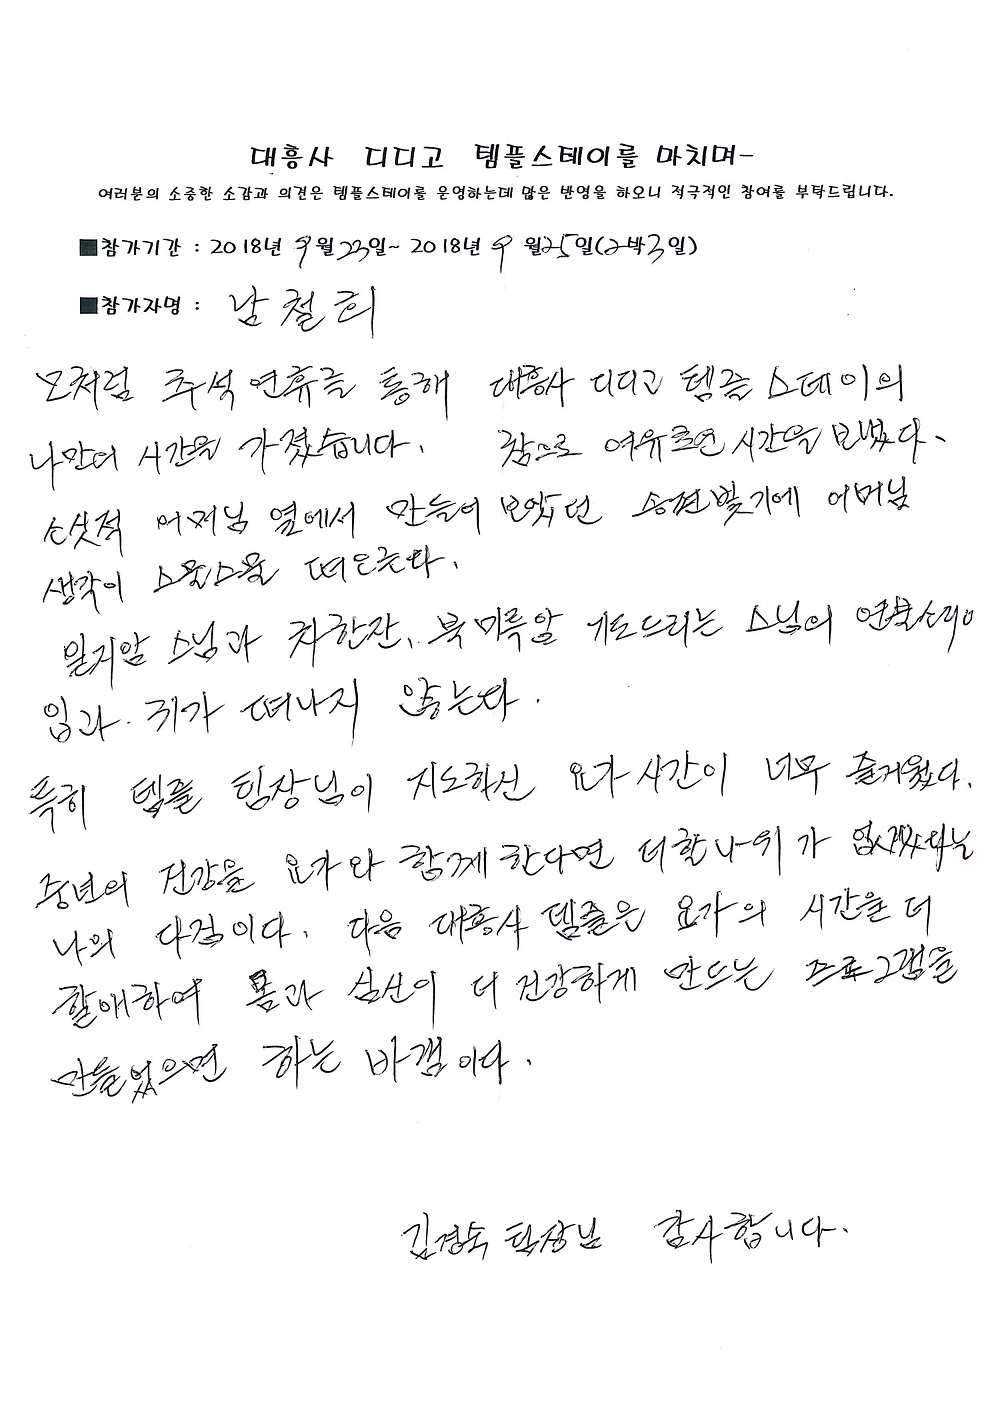 대흥사 디디고 템플스테이를 마치며-
여러분의 소중한 소감과 의견은 템플스테이를 운영하는데 많은 반영을 하오니 적극적인 참여를 부탁드립니다.
■참가기간 : 2018년 9월 23일~ 2018년 9월 25일(2박3일)
■참가자명 : 남철희
모처럼 추석 연휴를 통해 대흥사 디디고 템플 스테이의
나만의 시간을 가졌습니다. 참으로 여유로운 시간을 보냈다.
소싯적 어머님 옆에서 만들어 보았던 송편빚기에 어머님
생각이 스물스물 떠오른다.
일지암 스님과 차한잔, 북미륵암 기도드리는 스님의 염불소리에
입과. 귀가 떠나지 않는다.
특히 템플 팀장님이 지도하신 요가 시간이 너무 즐거웠다.
중년의 건강을 요가와 함께 한다면 더할나위가 없겠다는
나의 다짐이다. 다음 대흥사 템플은 요가의 시간을 더
할애하여 몸과 심신이 더 건강하게 만드는 프로그램을
만들었으면 하는 바램이다.
김경숙 팀장님 감사합니다.